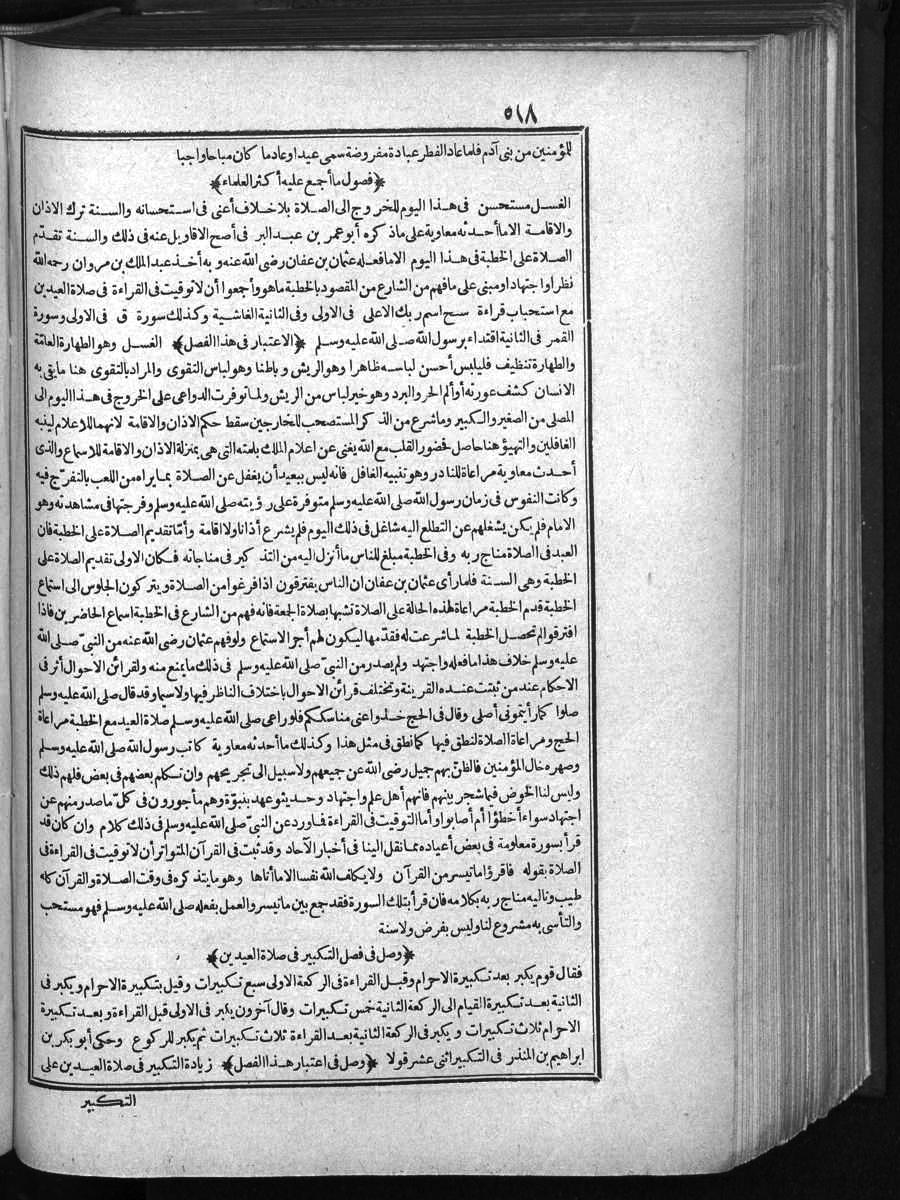 ٥١٨
للمؤمنين من بنى آدم فلما عاد الفطر عبادة مفروضة سمى عيدا وعاد ما كان مباحا واجبا
﴿فصول ما أجمع عليه أكثر العلماء﴾
الغسل مستحسن فى هذا اليوم للخروج الى الصلاة بلا خلاف أعنى فى استحسانه والسنة ترك الاذان
والاقامة الا ما أحدثه معاوية على ما ذكره أبو عمر بن عبد البر فى أصح الاقاويل عنه فى ذلك والسنة تقدّم
الصلاة على الخطبة فى هذا اليوم الا ما فعله عثمان بن عفان رضى الله عنه وبه أخذ عبد الملك بن مروان رحمه الله
نظرا واجتهادا ومبنى على ما فهم من الشارع من المقصود بالخطبة ما هو وأجمعوا أن لا توقيت فى القراءة فى صلاة العيدين
مع استحباب قراءة سبح اسم ربك الاعلى فى الاولى وفى الثانية الغاشية وكذلك سورة ق فى الاولى وسورة
القمر فى الثانية اقتداء برسول الله صلى الله عليه وسلم ﴿الاعتبار فى هذا الفصل﴾ الغسل وهو الطهارة العامّة
والطهارة تنظيف فليلبس أحسن لباسه ظاهرا وهو الريش وباطنا وهو لباس التقوى والمراد بالتقوى هنا ما يقى به
الانسان كشف عورته أو ألم الحر والبرد وهو خير لباس من الريش ولما توفرت الدواعى على الخروج فى هذا اليوم الى
المصلى من الصغير والكبير وما شرع من الذكر المستصحب للخارجين سقط حكم الاذان والاقامة لانهما للاعلام لينبه
الغافلين والتهيؤ هنا حاصل فحضور القلب مع الله يغنى عن اعلام الملك بلمته التى هى بمنزلة الاذان والاقامة للاسماع والذى
أحدث معاوية مراعاة للنادر وهو تنبيه الغافل فانه ليس ببعيد أن يغفل عن الصلاة بما يراه من اللعب بالتفرّج فيه
وكانت النفوس فى زمان رسول الله صلى الله عليه وسلم متوفرة على رؤيته صلى الله عليه وسلم وفرجتها فى مشاهدته وهو
الامام فلم يكن يشغلهم عن التطلع اليه شاغل فى ذلك اليوم فلم يشرع أذانا ولا اقامة وأمّا تقديم الصلاة على الخطبة فان
العبد فى الصلاة مناج ربه وفى الخطبة مبلغ للناس ما أنزل اليه من التذكير فى مناجاته فكان الاولى تقديم الصلاة على
الخطبة وهى السنة فلما رأى عثمان بن عفان ان الناس يفترقون اذا فرغوا من الصلاة ويتركون الجلوس الى استماع
الخطبة قدم الخطبة مراعاة لهذه الحالة على الصلاة تشبها بصلاة الجمعة فانه فهم من الشارع فى الخطبة اسماع الحاضرين فاذا
افترقوا لم تحصل الخطبة لما شرعت له فقدّمها ليكون لهم أجر الاستماع ولو فهم عثمان رضى الله عنه من النبىّ صلى الله
عليه وسلم خلاف هذا ما فعله واجتهد ولم يصدر من النبىّ صلى الله عليه وسلم فى ذلك ما يمنع منه ولقرائن الاحوال أثر فى
الاحكام عند من ثبتت عنده القرينة وتختلف قرائن الاحوال باختلاف الناظر فيها ولا سيما وقد قال صلى الله عليه وسلم
صلوا كما رأيتمونى أصلى وقال فى الحج خذوا عنى مناسككم فلو راعى صلى الله عليه وسلم صلاة العيد مع الخطبة مراعاة
الحج ومراعاة الصلاة لنطق فيها كما نطق فى مثل هذا وكذلك ما أحدثه معاوية كاتب رسول الله صلى الله عليه وسلم
وصهره خال المؤمنين فالظنّ بهم جميل رضى الله عن جميعهم ولا سبيل الى تجريحهم وان تكلم بعضهم فى بعض فلهم ذلك
وليس لنا الخوض فيما شجر بينهم فانهم أهل علم واجتهاد وحديثو عهد بنبوّة وهم مأجورون فى كلّ ما صدر منهم عن
اجتهاد سواء أخطؤا أم أصابوا وأما التوقيت فى القراءة فما ورد عن النبىّ صلى الله عليه وسلم فى ذلك كلام وان كان قد
قرأ بسورة معلومة فى بعض أعياده مما نقل الينا فى أخبار الآحاد وقد ثبت فى القرآن المتواتر أن لا توقيت فى القراءة فى
الصلاة بقوله فاقرؤا ما تيسر من القرآن ولا يكلف الله نفسا الا ما أتاها وهو ما يتذكره فى وقت الصلاة والقرآن كله
طيب وتاليه مناج ربه بكلامه فان قرأ بتلك السورة فقد جمع بين ما تيسر والعمل بفعله صلى الله عليه وسلم فهو مستحب
والتأسى به مشروع لنا وليس بفرض ولا سنة
﴿وصل فى فصل التكبير فى صلاة العيدين﴾
فقال قوم يكبر بعد تكبيرة الاحرام وقبل القراءة فى الركعة الاولى سبع تكبيرات وقيل بتكبيرة الاحرام ويكبر فى
الثانية بعد تكبيرة القيام الى الركعة الثانية خمس تكبيرات وقال آخرون يكبر فى الاولى قبل القراءة وبعد تكبيرة
الاحرام ثلاث تكبيرات ويكبر فى الركعة الثانية بعد القراءة ثلاث تكبيرات ثم يكبر للركوع وحكى أبو بكر بن
ابراهيم بن المنذر فى التكبير اثنى عشر قولا ﴿وصل فى اعتبار هذا الفصل﴾ زيادة التكبير فى صلاة العيدين على
التكبير